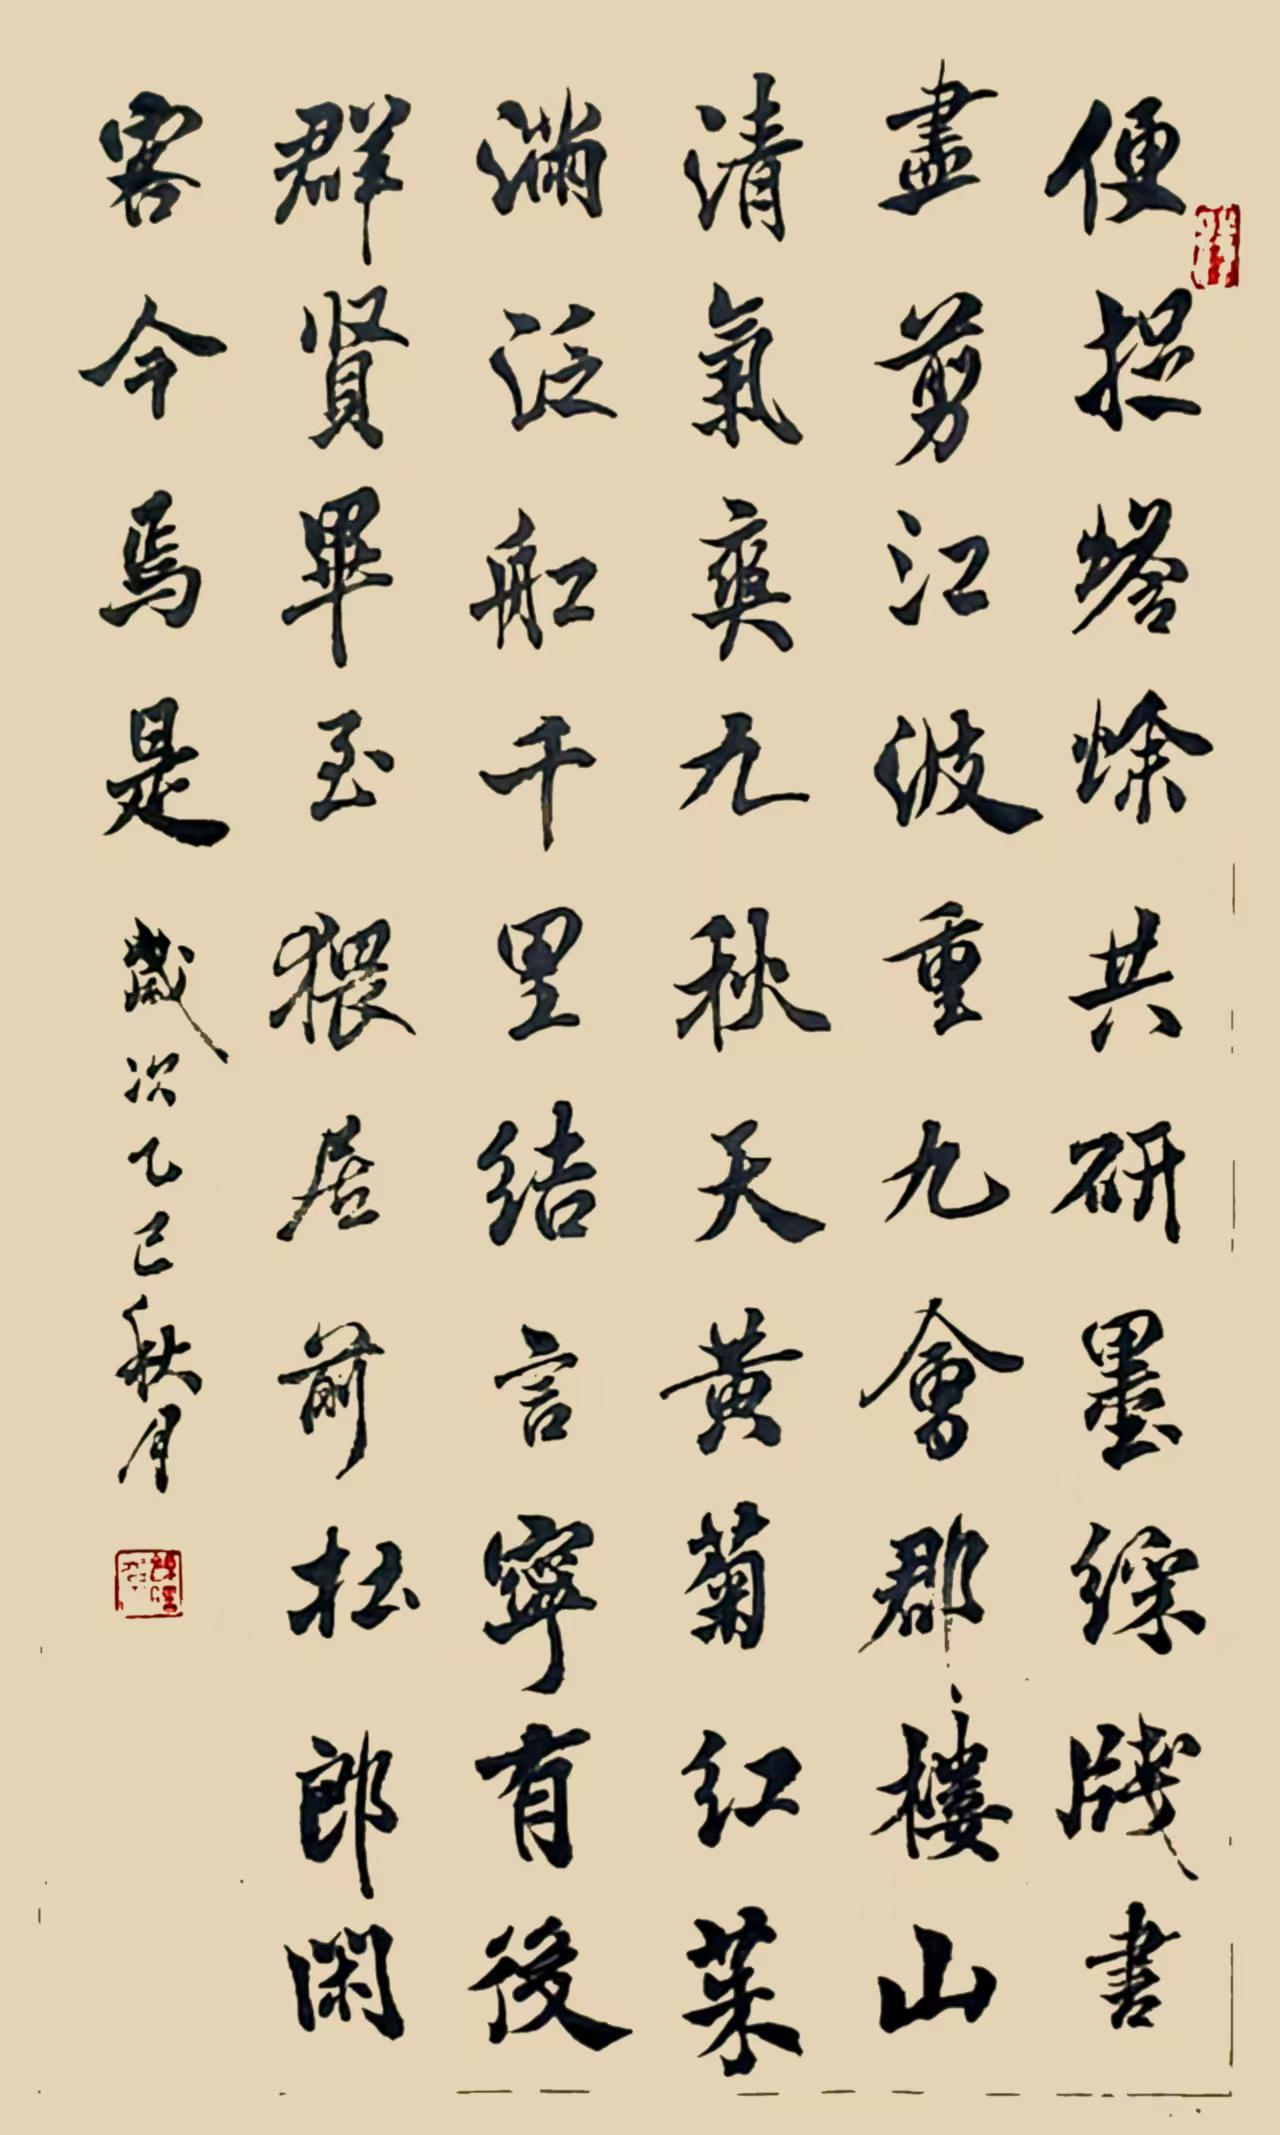 便捉蟾蜍共研墨綵牋書
盡剪江波重九會郡樓山
清氣爽九秋天黃菊紅茱
滿泛舡千里結言寧有後
群賢畢至猥居前杜郎閑
客今焉是
歲次乙巳秋月